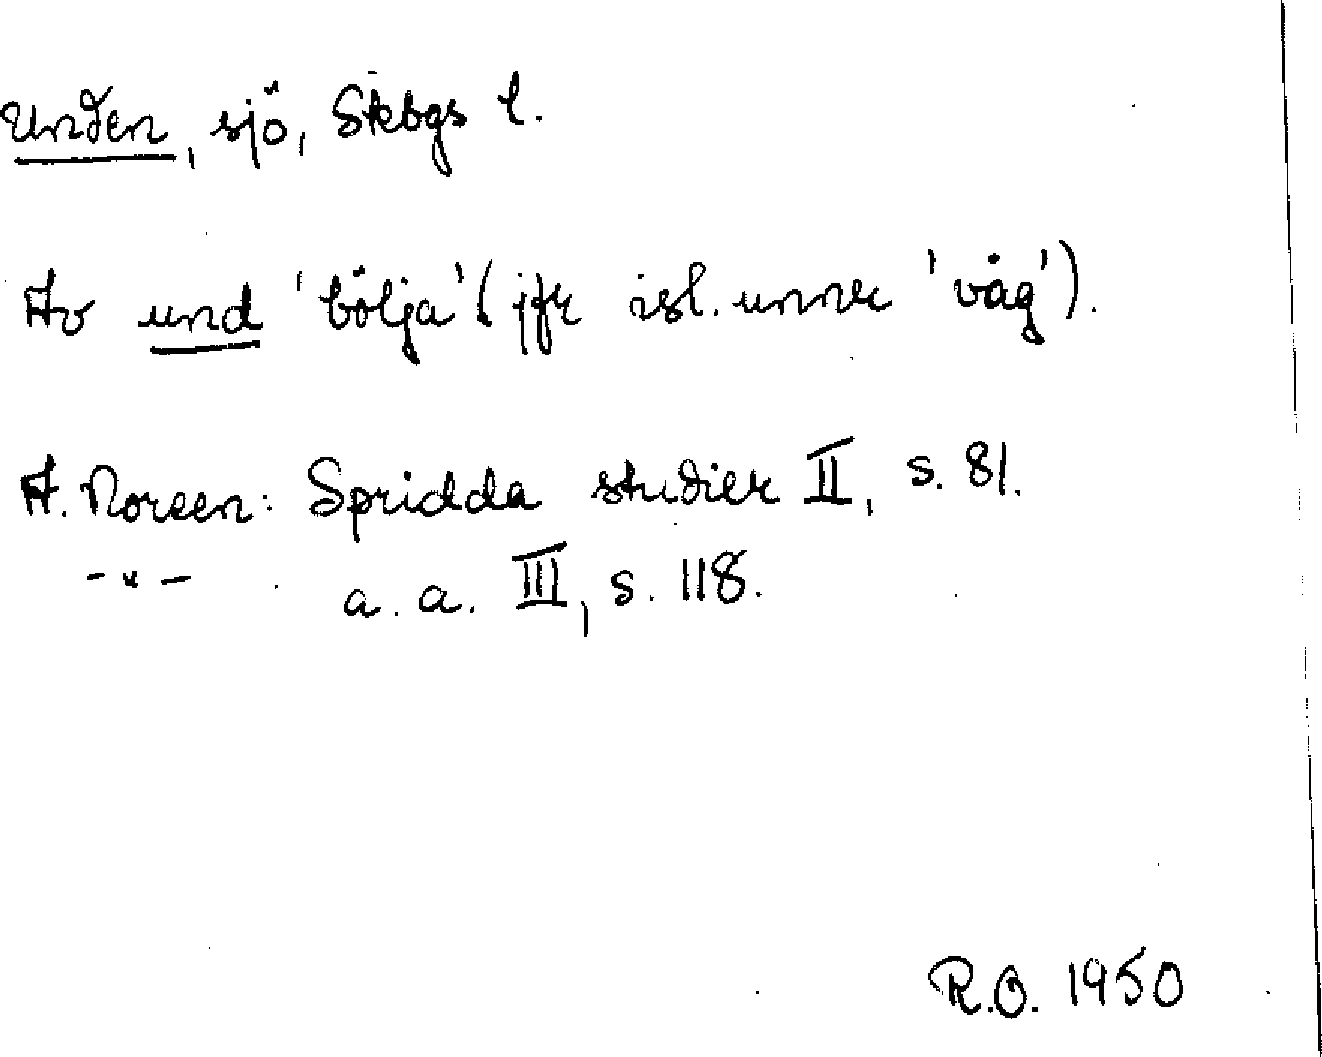 Unden, sjö, Skbgs l.
Av und 'bölja' (jfr isl. unnr 'våg').
A. Noreen: Spridda studier II, s. 81.
-"- a. a. III, s. 118.
R.O. 1950